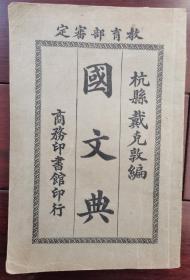 教育部審定
杭縣戴克敦編
國文典
商務印書館印行